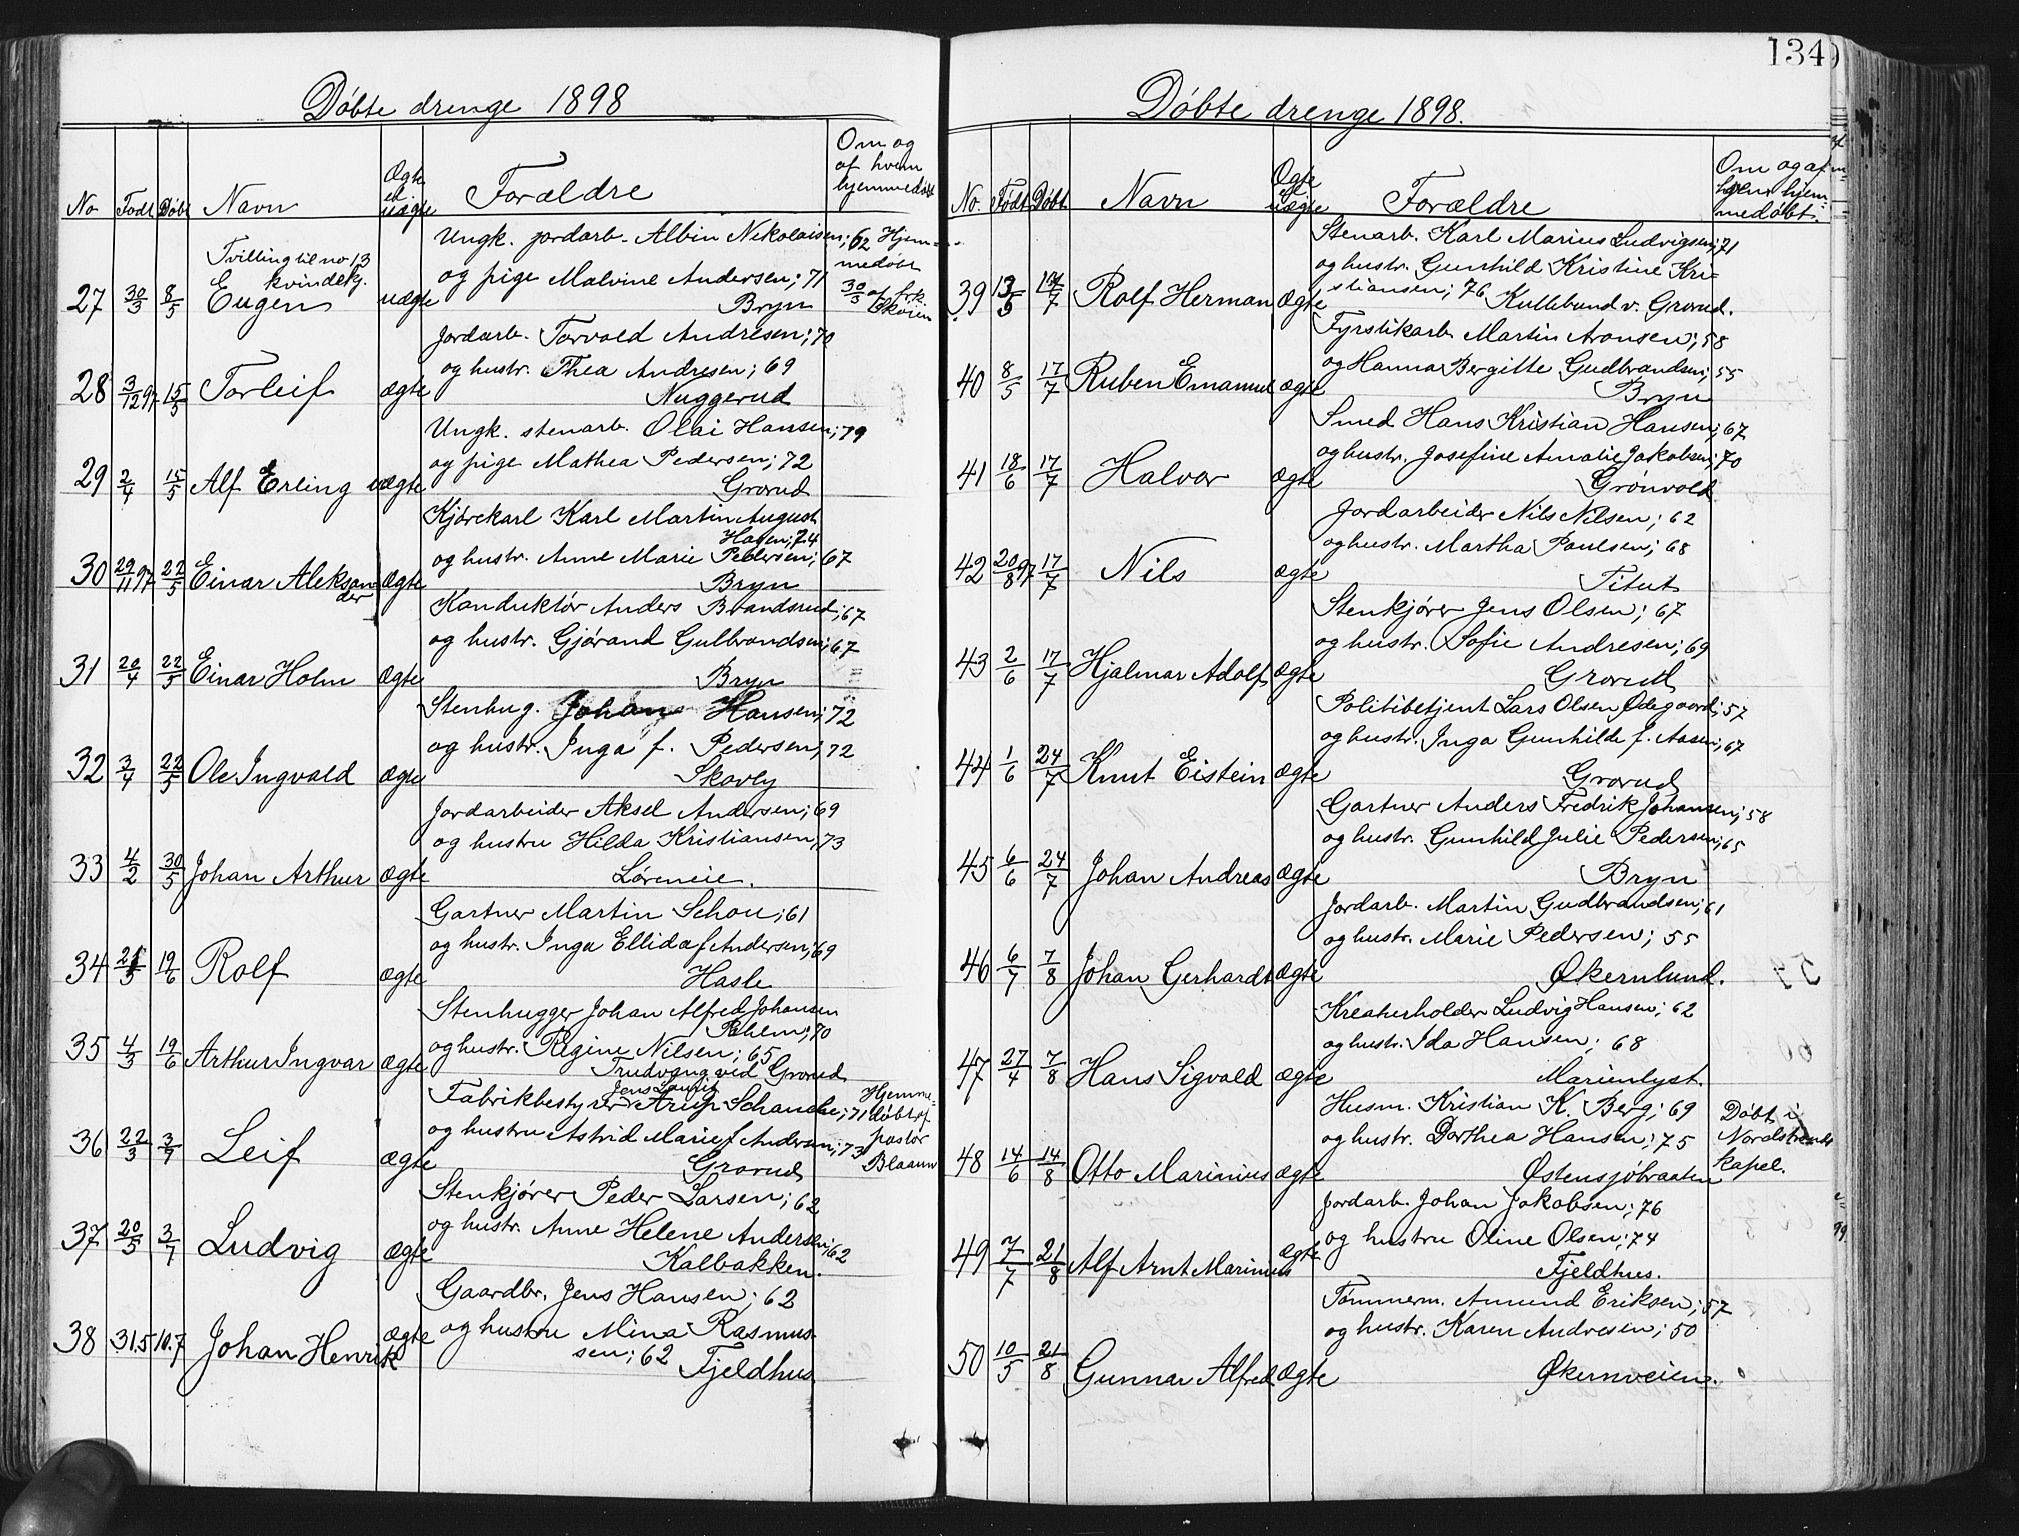 134
Døbte drenge 1898
No Født Døbt Navn Ægte el uægte Forældre Om og af hvem hjemmedøbt
Tvilling til no 13 kvindekj.
27 30/3 8/5 Eugen uægte
Ungk. jordarb. Albin Nikolaisen; 62
og pige Malvine Andersen; 71
Bryn
Hjemmedøbt 30/3 af frk.
28 3/12 97 15/5 Torleif ægte
Jordarb. Torvald Andresen; 70
og hustr. Thea Andresen; 69
Nuggerud
29 2/4 15/5 Alf Erling uægte
Ungk. stenarb. Olai Hansen; 79
og pige Mathea Pedersen; 72
Grorud
30 29/11 97 22/5 Einar Aleksander ægte
Kjørekarl Karl Martin August
Hagen; 74
og hustr. Anne Marie Pedersen; 67
Bryn
31 20/4 22/5 Einar Holm ægte
Konduktør Anders Brandsrud; 67
og hustr. Gjørand Gulbrandsen; 67
Bryn
32 3/4 22/5 Ole Ingvald ægte
Stenhug. Johan Hansen; 72
og hustr. Inga f. Pedersen; 72
Skovly
33 4/2 30/5 Johan Arthur ægte
Jordarbeider Aksel Andersen; 69
og hustru Hilda Kristiansen; 73
Løreneie.
34 21/3 19/6 Rolf ægte
Gartner Martin Schou; 61
og hustr. Inga Ellida f Andersen; 69
Hasle
35 4/3 19/6 Arthur Ingvar ægte
Stenhugger Johan Alfred Johansen
70
og hustr. Regine Nilsen; 65
Trudvang ved Grorud
36 22/3 3/7 Leif ægte
Jens Laurit
Fabrikbestyrer Arup Schanche; 71
og hustru Astrid Marie f Andersen; 73
Grorud
Hjemmedøbt af pastor Blaauw
37 20/5 3/7 Ludvig ægte
Stenkjører Peder Larsen; 62
og hustr. Anne Helene Andersen; 62
Kalbakken.
38 31.5 10.7 Johan Henrik ægte
Gaardbr. Jens Hansen; 62
og hustru Mina Rasmussen; 62
Fjeldhus
Døbte drenge 1898.
No. Født Døbt Navn Ægte el uægte Forældre Om og af hvem hjemmedøbt.
39 13/5 17/7 Rolf Herman ægte
Stenarb. Karl Marius Ludvigsen; 71
og hustr. Gunhild Kristine Kristiansen; 76
Kullebund v. Grorud.
40 8/5 17/7 Ruben Emanuel ægte
Fyrstikarb. Martin Aronsen; 58
og Hanna Bergitte Gudbrandsen; 55
Bryn
41 18/6 17/7 Halvor ægte
Smed Hans Kristian Hansen; 67
og hustr. Josefine Amalie Jakobsen; 70
Grønvold
42 20/8 97 17/7 Nils ægte
Jordarbeider Nils Nilsen; 62
og hustr. Martha Paulsen; 68
Titut
43 2/6 17/7 Hjalmar Adolf ægte
Stenkjører Jens Olsen; 67
og hustr. Sofie Andresen; 69
Grorud
44 1/6 24/7 Knut Eistein ægte
Politibetjent Lars Olsen Ødegaard; 57
og hustr. Inga Gunhilde f. Aasen; 67
Grorud
45 6/6 24/7 Johan Andreas ægte
Gartner Anders Fredrik Johansen; 58
og hustr. Gunhild Julie Pedersen; 65
Bryn
46 6/7 7/8 Johan Gerhardt ægte
Jordarb. Martin Gudbrandsen; 61
og hustr. Marie Pedersen; 55
Økernlund.
47 27/4 7/8 Hans Sigvald ægte
Kreaturholder Ludvig Hansen; 62
og hustr. Ida Hansen; 68
Marienlyst.
48 14/6 14/8 Otto Marinius ægte
Husm. Kristian K. Berg; 69
og hustr. Dorthea Hansen; 75
Østensjøbraaten
Døbt i Nordstrands kapel.
49 7/7 21/8 Alf Arnt Marinius ægte
Jordarb. Johan Jakobsen; 76
og hustru Oline Olsen; 74
Fjeldhus.
50 10/5 21/8 Gunnar Alfred ægte
Tømmerm. Amund Eriksen; 57
og hustr. Karen Andresen; 50
Økernveien.